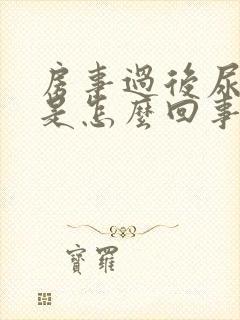 房事過後尿
是怎麼回事
寶羅